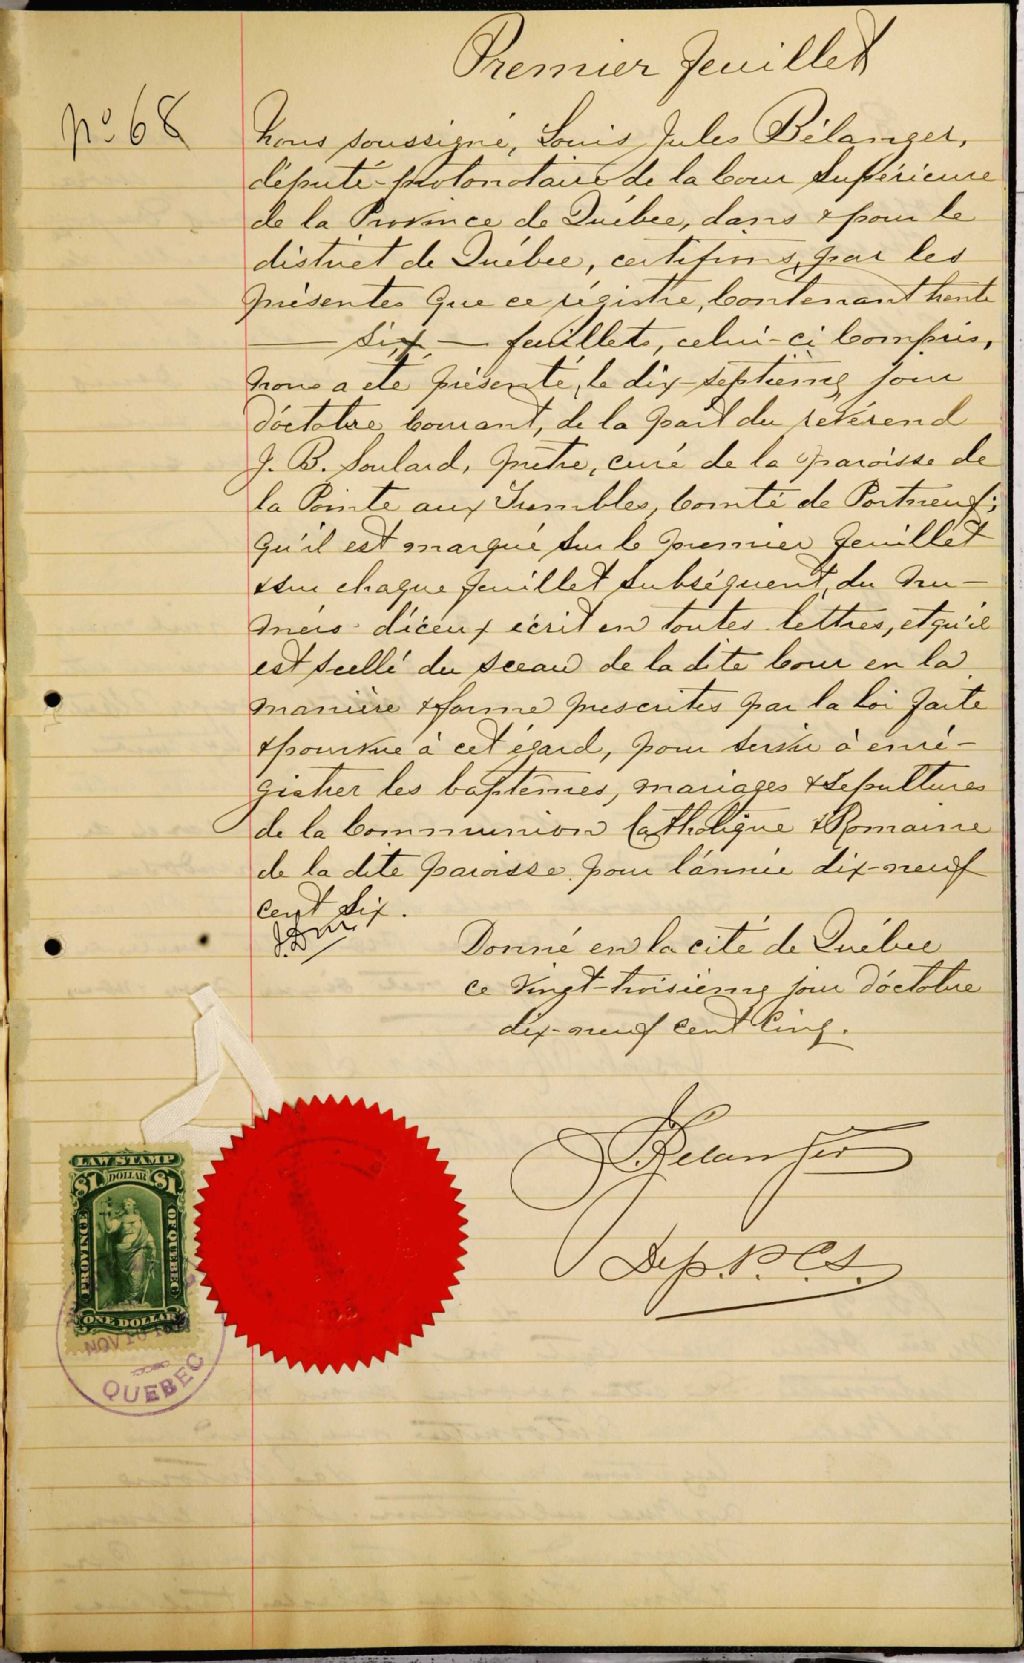 Premier feuillet
No 68
Nous soussigné, Louis Jules Bélanger,
député-protonotaire de la Cour Supérieure
de la Province de Québec, dans & pour le
district de Québec, certifions, par les
présentes que ce régistre, contenant trente
six feuillets, celui-ci compris,
nous a été présenté, le dix-septième jour
d'octobre courant, de la part du révérend
J. B. Soulard, prêtre, curé de la paroisse de
la Pointe aux Trembles, Comté de Portneuf;
qu'il est marqué sur le premier feuillet
& sur chaque feuillet subséquent, du nu-
méro d'iceux écrit en toutes lettres, et qu'il
est scellé du sceau de la dite Cour en la
manière & forme prescrites par la loi faite
& pourvue à cet égard, pour servir à enré-
gistrer les baptêmes, mariages & sepultures
de la Communion Catholique & Romaine
de la dite paroisse pour l'année dix-neuf
cent six.
Donné en la cité de Québec
ce vingt-troisième jour d'octobre
dix-neuf cent cinq.
Belanger
Dep. P. C. S.
LAW STAMP
$1 DOLLAR $1
PROVINCE OF QUEBEC
ONE DOLLAR
NOV
QUEBEC